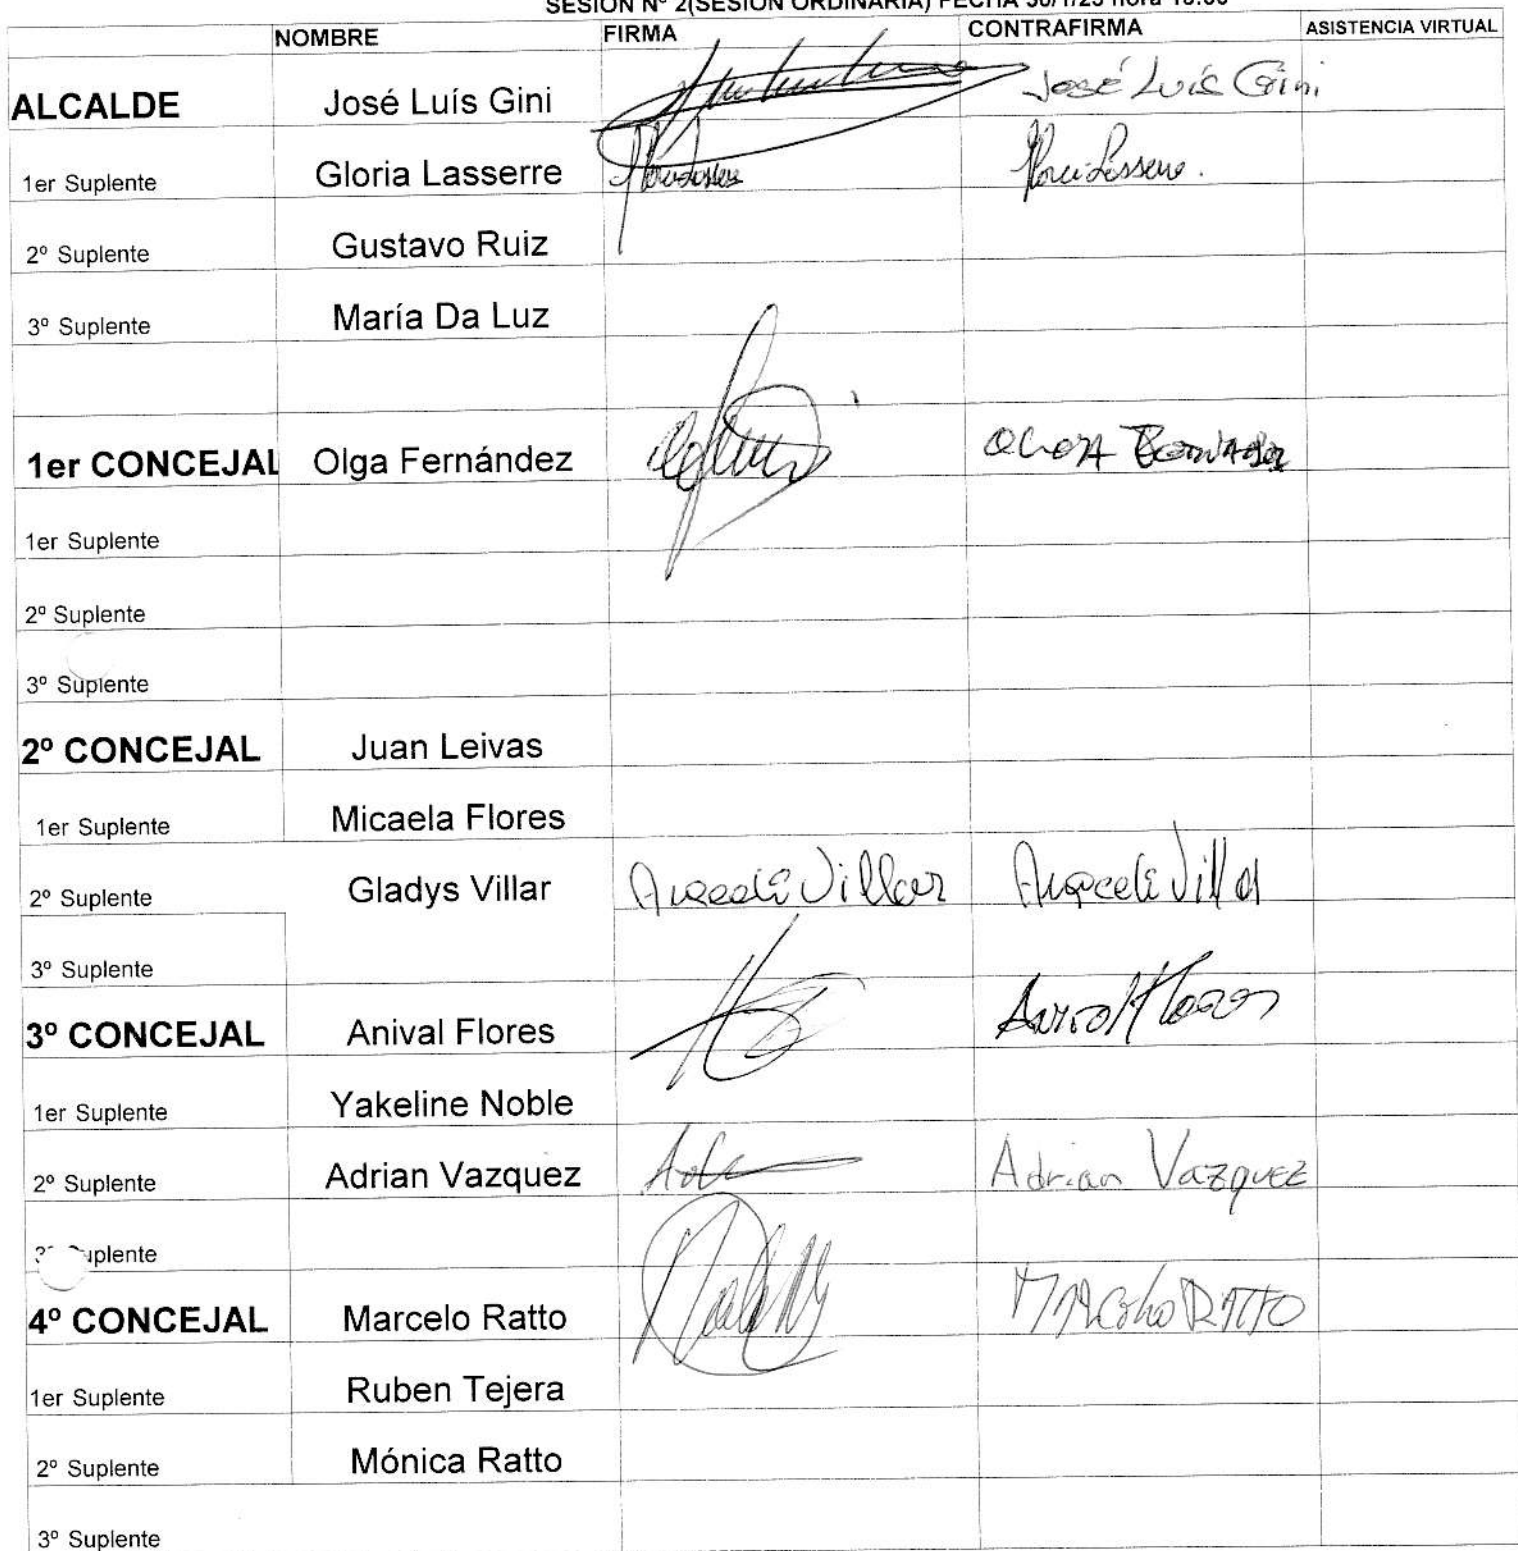 SESION Nº 2(SESION ORDINARIA) FECHA 30/1/23 hora
NOMBRE FIRMA CONTRAFIRMA ASISTENCIA VIRTUAL
ALCALDE José Luís Gini José Luís Gini
1er Suplente Gloria Lasserre
2º Suplente Gustavo Ruiz
3º Suplente María Da Luz
1er CONCEJAL Olga Fernández
1er Suplente
2º Suplente
3º Suplente
2º CONCEJAL Juan Leivas
1er Suplente Micaela Flores
2º Suplente Gladys Villar Araceli Villar Araceli Villar
3º Suplente
3º CONCEJAL Anival Flores
1er Suplente Yakeline Noble
2º Suplente Adrian Vazquez Adrian Vazquez
3º Suplente
4º CONCEJAL Marcelo Ratto Marcelo RATTO
1er Suplente Ruben Tejera
2º Suplente Mónica Ratto
3º Suplente